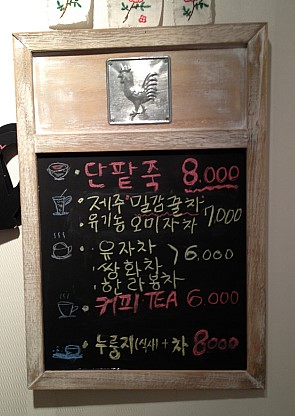 단팥죽 8.000
제주 밀감꿀차
유기농 오미자차 7,000
유자차
쌍화차 6,000
한라봉차
커피 TEA 6.000
누룽지(식사) + 차 8000